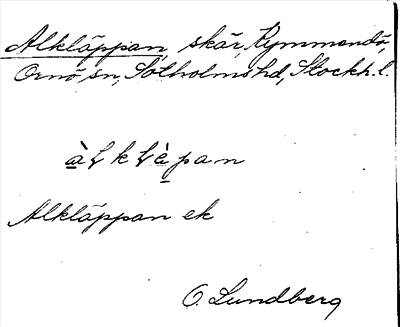 Alkläppan, skär, Kymmendö,
Ornö sn, Sotholms hd, Stockh. l.
àlklèpan
Alkläppan ek
O. Lundberg